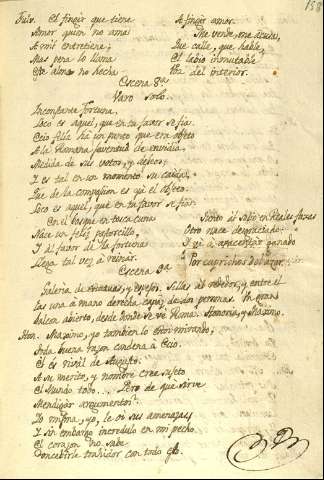 158
Fulv. El fingir que tiene
Amor quien no ama
A mi entretiene;
Mas pena lo llama
Qe alma no hecha
A fingir amor.
Me vende, me acuda,
Que calle, que hable,
El labio inmutable
Era del interior.
Escena 8a
Varo solo.
Inconstante fortuna,
Loco es aquel, que en tu favor se fia.
Ecio feliz ha un punto que era objeto
A la Romana juventud de envidia,
Medida de sus votos, y deseos;
I es tal en un momento su caida,
Que de la compasion es ya el objeto.
Loco es aquel, que en tu favor se fia.
En el bosque en tosca cuna
Nace un feliz pastorcillo,
I al favor de la fortuna
Llega tal vez à reinar.
Junto al solio en Reales fajas
Otro nace desgraciado;
I và à apacentar ganado
Por caprichos del azar.
Escena 9a
Galeria de estatuas, y espejos. Sillas al rededor, y entre el
las una à mano derecha capaz de dos personas. Un gran
balcon abierto, desde donde se vè Roma. Honoria, y Maximo.
Hon. Maximo, yo tambien lo estoi mirando;
Toda buena razon condena à Ecio.
El es rival de Augusto:
A su merito, y nombre cree sujeto
El Mundo todo... Pero de que sirve
Mendigar argumentos?
Io misma, yo, le oi sus amenazas;
I sin embargo incredulo en mi pecho
El corazon no sabe
Concebirle traidor con todo eso.